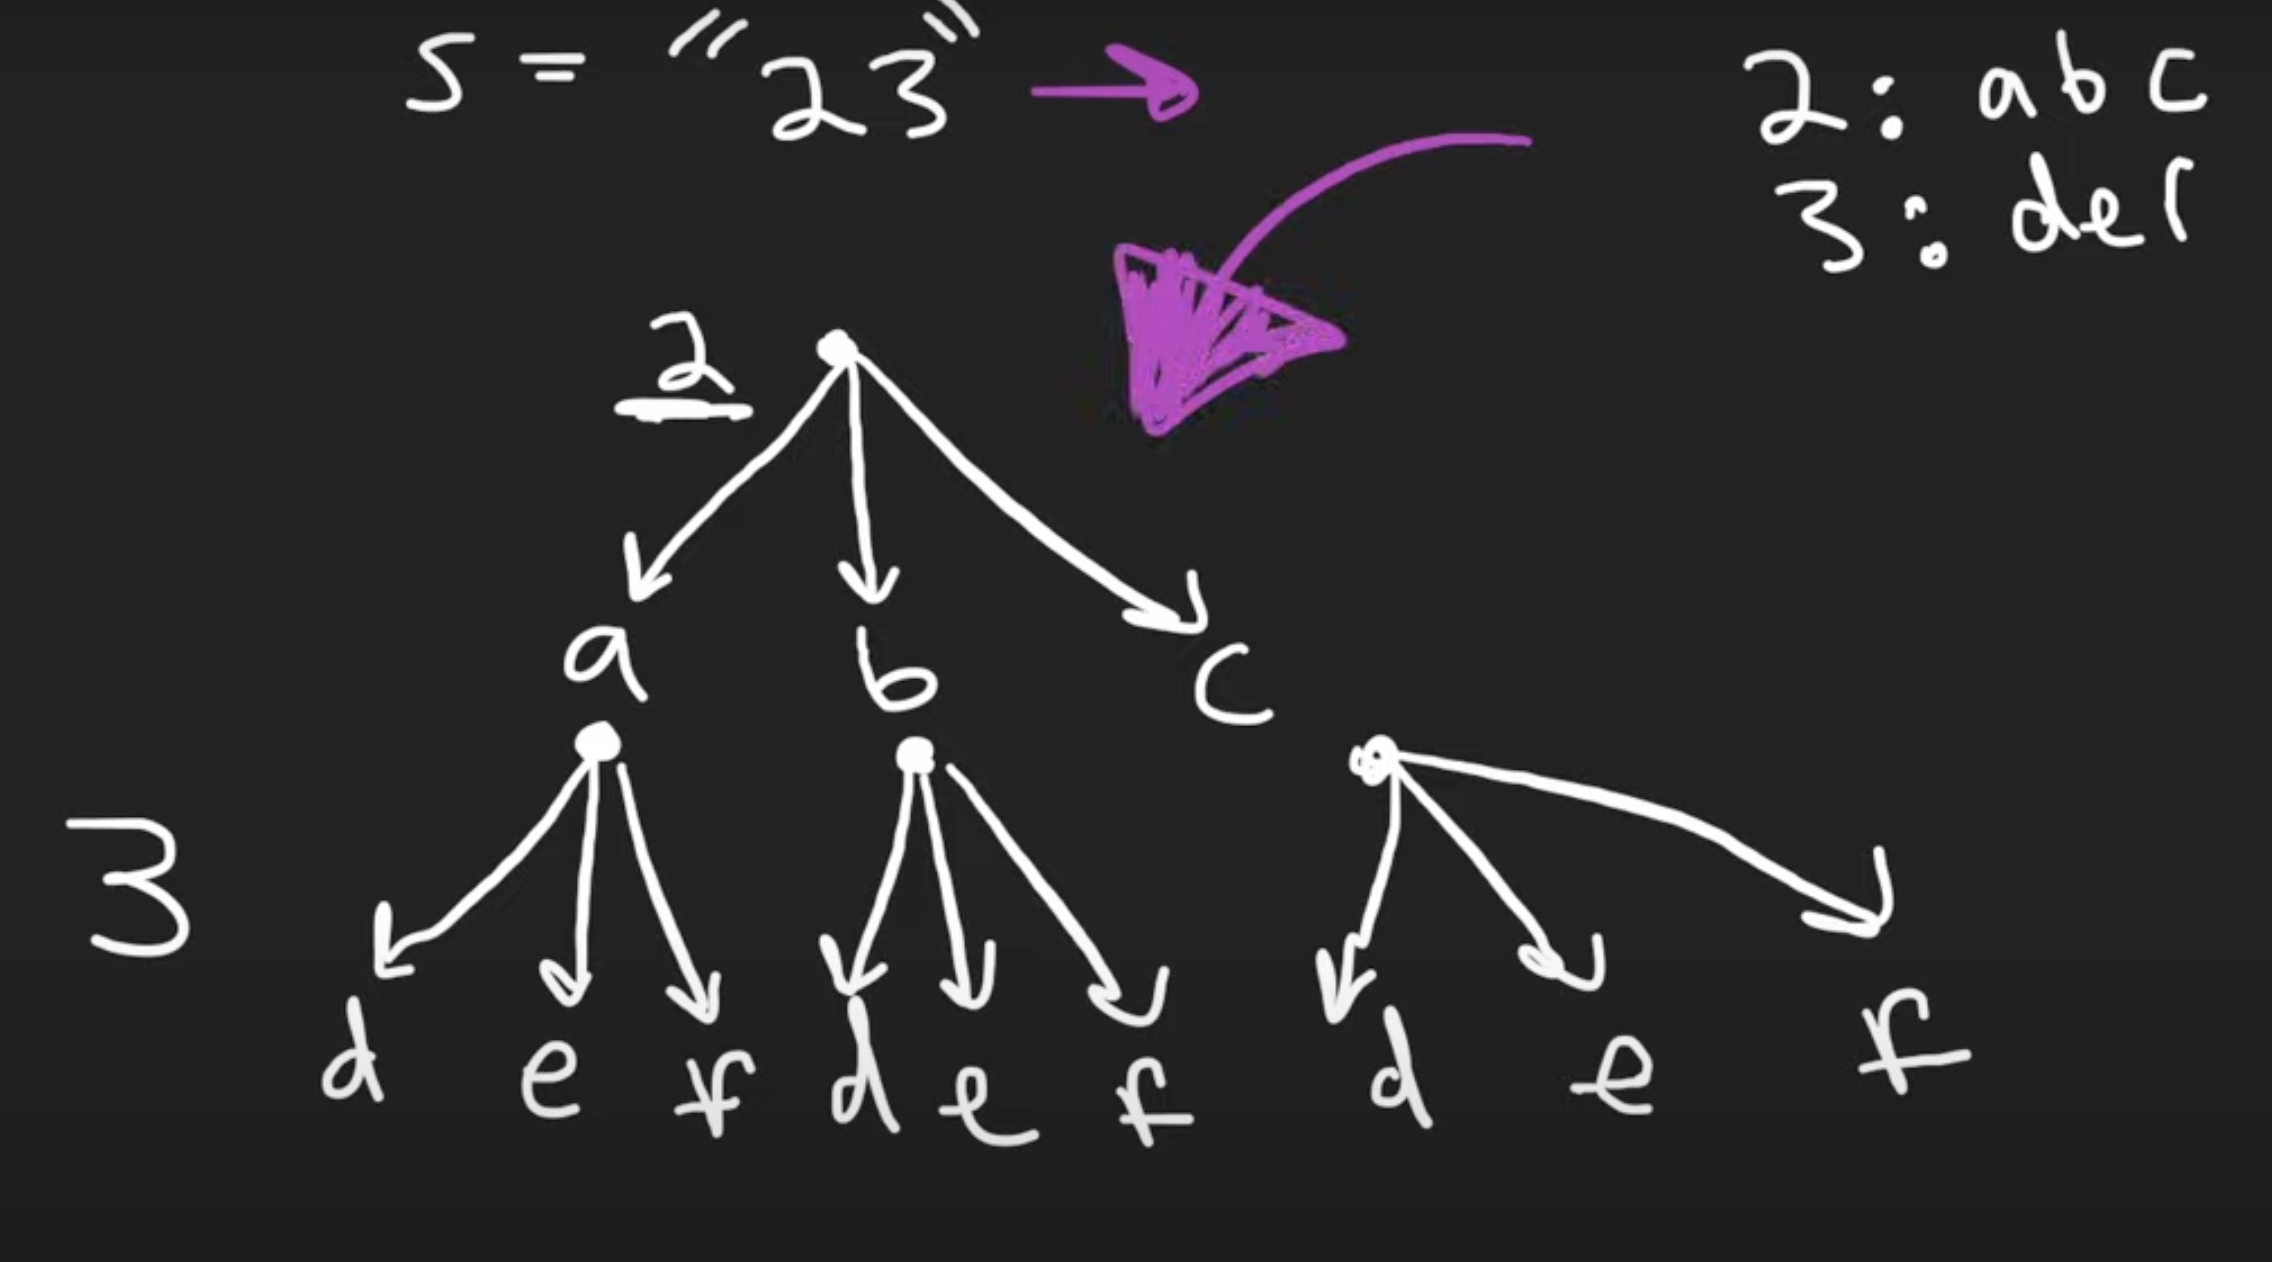 s = "23"
2: abc
3: def
2
a b c
3
d e f d e f d e f